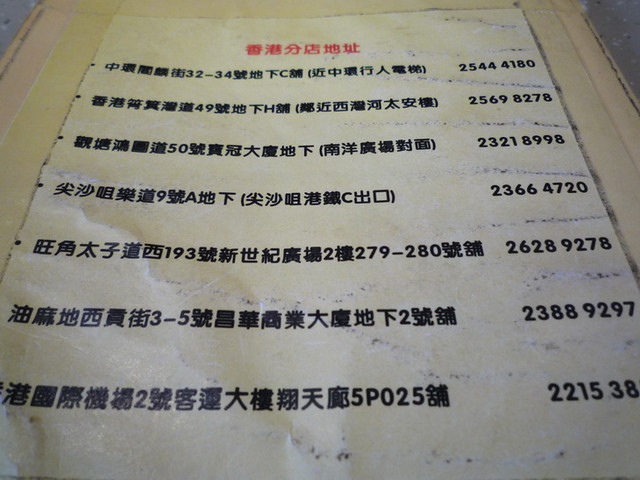 香港分店地址
• 中環閣麟街32-34號地下C舖 (近中環行人電梯) 2544 4180
• 香港筲箕灣道49號地下H舖 (鄰近西灣河太安樓) 2569 8278
• 觀塘鴻圖道50號寶冠大廈地下 (南洋廣場對面) 2321 8998
• 尖沙咀樂道9號A地下 (尖沙咀港鐵C出口) 2366 4720
• 旺角太子道西193號新世紀廣場2樓279-280號舖 2628 9278
油麻地西貢街3-5號昌華商業大廈地下2號舖 2388 9297
香港國際機場2號客運大樓翔天廊5P025舖 2215 38